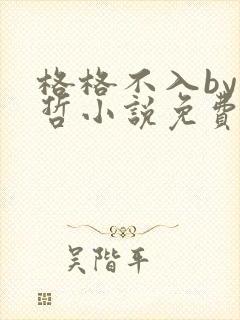 格格不入by
哲小說免費
吴階平